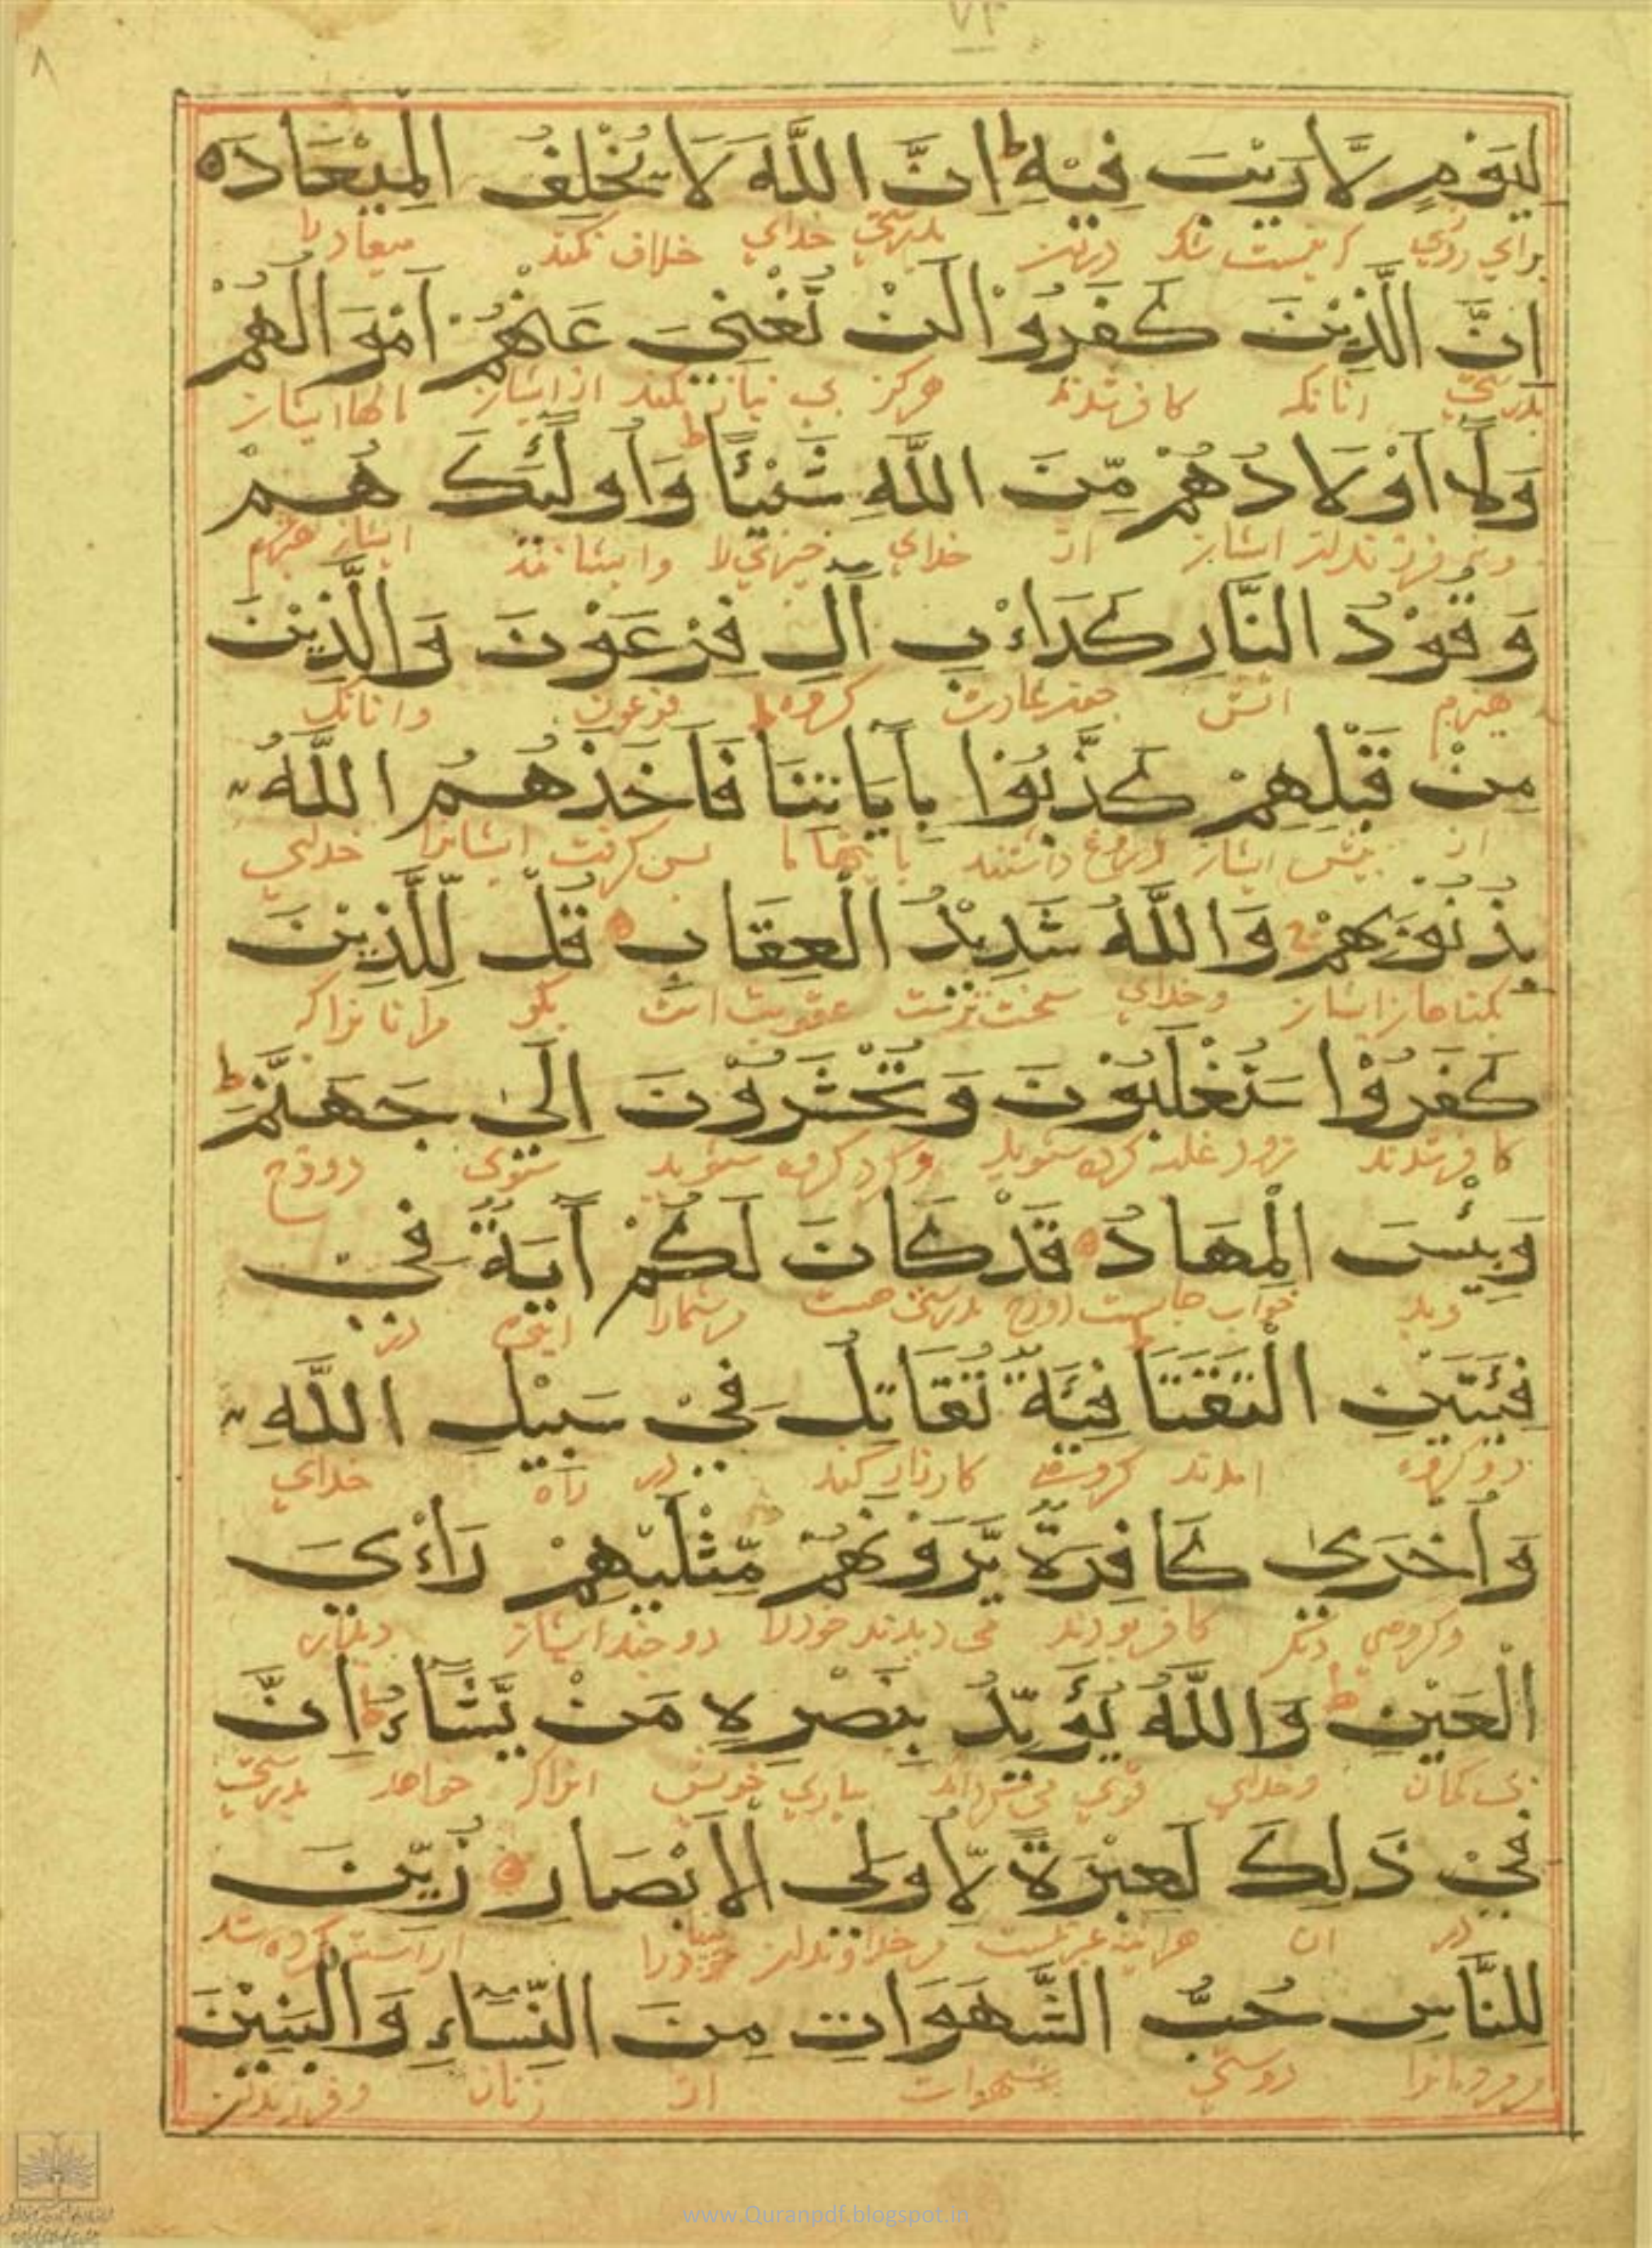 ٧٣
٨
لِيَوْمٍ لَّا رَيْبَ فِيْهِ ط اِنَّ اللَّهَ لَا يُخْلِفُ الْمِيْعَادَ ه
براي روزي كه نيست شك دران بدرستي خداي خلاف نكند ميعاد را
اِنَّ الَّذِيْنَ كَفَرُوْا لَنْ تُغْنِيَ عَنْهُمْ اَمْوَالُهُمْ
بدرستي انانكه كافر شدند هركز بي نياز نكند از ايشان مالها ايشان
وَلَا اَوْلَادُهُمْ مِّنَ اللَّهِ شَيْئًا ط وَاُولٰٓئِكَ هُمْ
ونه فرزندان ايشان از خداي چيزي را وايشانند ايشان
وَقُوْدُ النَّارِ كَدَاءْبِ آلِ فِرْعَوْنَ وَالَّذِيْنَ
هيزم اتش كروه فرعون وانانكه
مِنْ قَبْلِهِمْ كَذَّبُوْا بِآيَاتِنَا فَاَخَذَهُمُ اللَّهُ
از پيش ايشان دروغ داشتند پس كرفت ايشانرا خداي
بِذُنُوْبِهِمْ وَاللَّهُ شَدِيْدُ الْعِقَابِ قُلْ لِّلَّذِيْنَ
بكناهان ايشان وخداي سخت عقوبت است بكو مرانانراكه
كَفَرُوْا سَتُغْلَبُوْنَ وَتُحْشَرُوْنَ اِلٰى جَهَنَّمَ ط
كافر شدند زود غلبه كرده شويد وكرد كرده شويد سوى دوزخ
وَبِئْسَ الْمِهَادُ قَدْ كَانَ لَكُمْ آيَةٌ فِيْ
وبد خواب جايست دوزخ بدرستي هست مرشمارا در
فِئَتَيْنِ الْتَقَتَا ط فِئَةٌ تُقَاتِلُ فِيْ سَبِيْلِ اللَّهِ
دو كروه امدند كروهى كارزار كنند در راه خداي
وَاُخْرٰى كَافِرَةٌ يَّرَوْنَهُمْ مِّثْلَيْهِمْ رَاْءيَ
وكروهي ديكر كافر بودند مى ديدند خودرا دو چند ايشان ديدار
الْعَيْنِ ط وَاللَّهُ يُؤَيِّدُ بِنَصْرِهِ مَنْ يَّشَاءُ ط اِنَّ
بى كمان وخداي قوي بياري خويش انراكه خواهد بدرستي
فِيْ ذٰلِكَ لَعِبْرَةً لِّاُولِي الْاَبْصَارِ زُيِّنَ
در ان هراينه عبرتست مر خداوندان اراسته كرده شد
لِلنَّاسِ حُبُّ الشَّهَوَاتِ مِنَ النِّسَاءِ وَالْبَنِيْنَ
مر مردمانرا دوستي شهوات از زنان وفرزندان
www.Quranpdf.blogspot.in